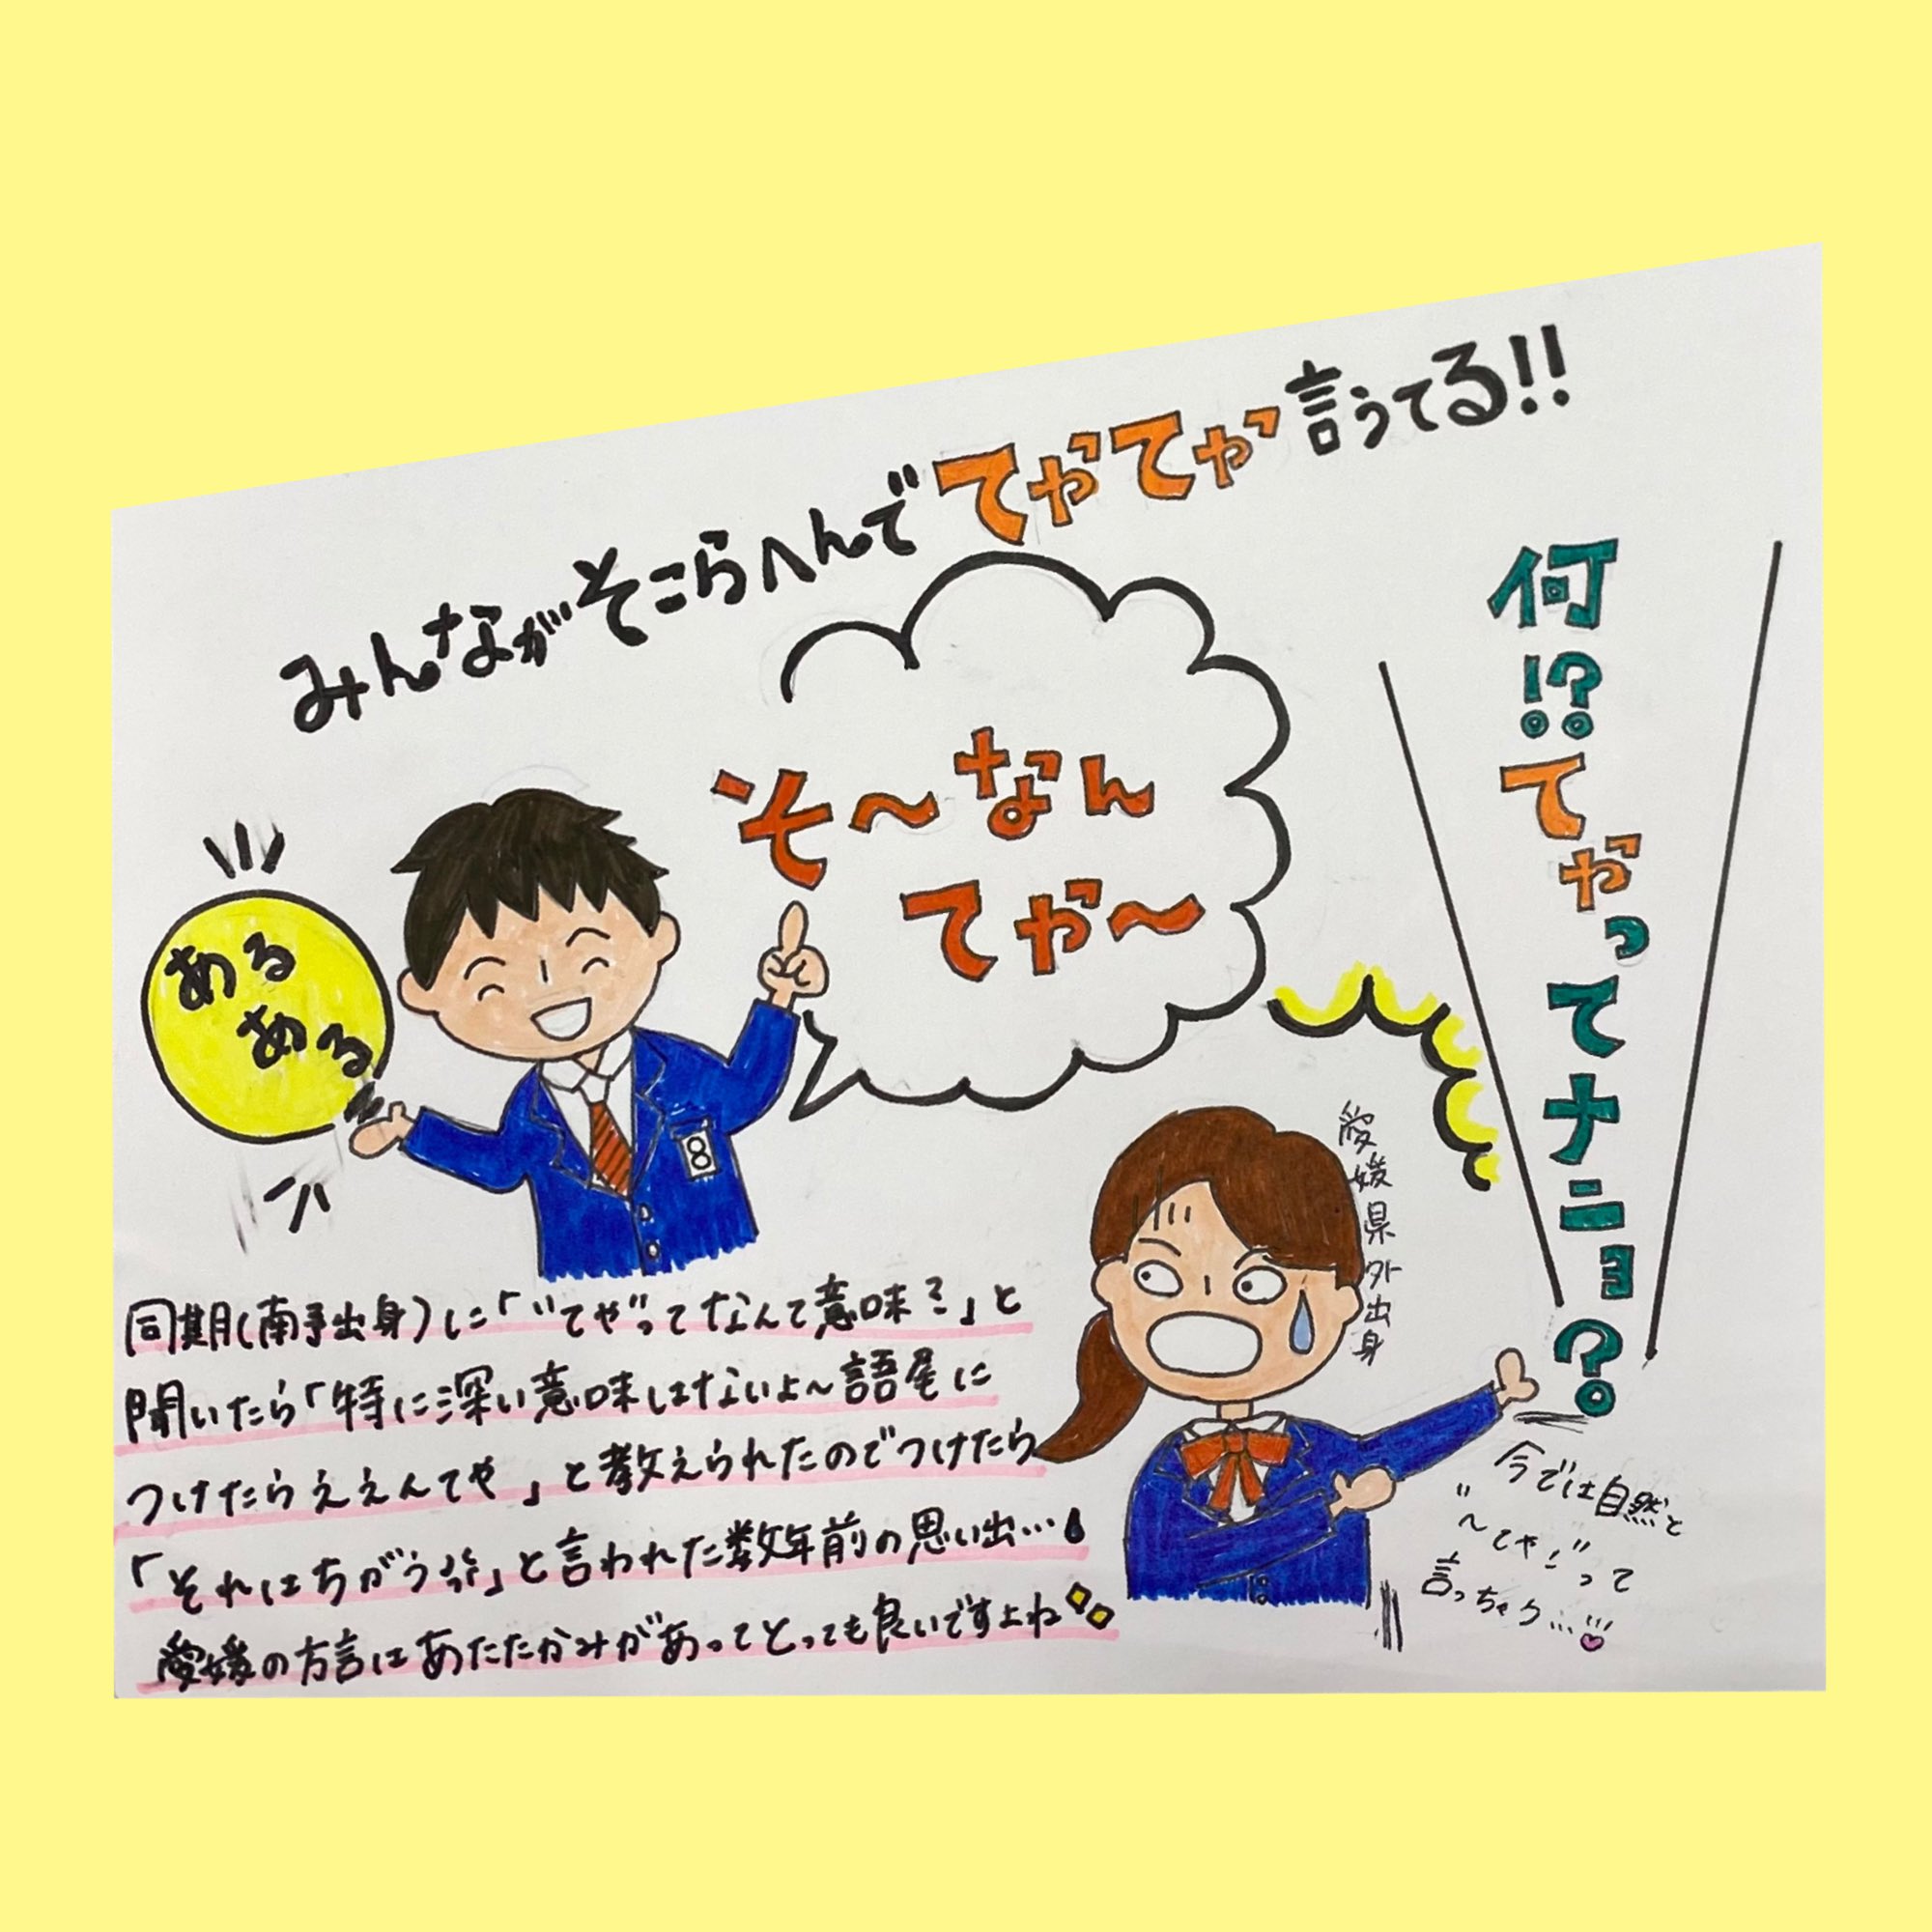 みんながそこらへんでてやてや言うてる!!
そ〜なん
てや〜
何!?てやってナニョ?
ある
ある
8
愛媛県外出身
同期(南予出身)に「"てや"ってなんて意味?」と
聞いたら「特に深い意味はないよ〜語尾に
つけたらええんてや」と教えられたのでつけたら
「それはちがう」と言われた数年前の思い出…
愛媛の方言はあたたかみがあってとっても良いですよね
今では自然と
"〜てや!"って
言っちゃう…